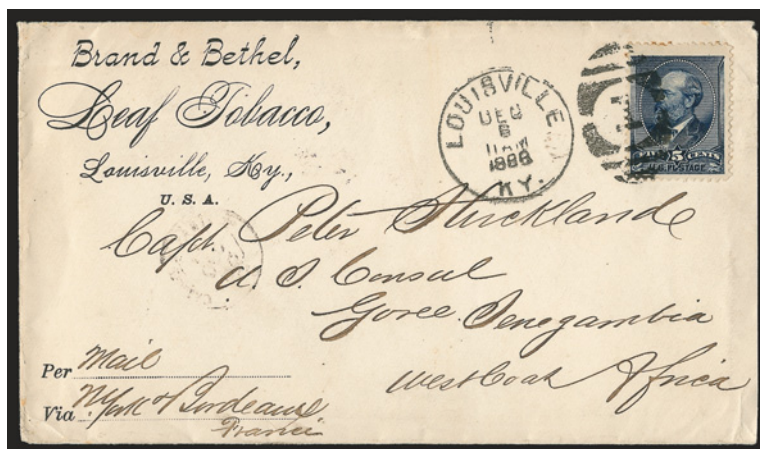 Brand & Bethel,
Leaf Tobacco,
Louisville, Ky.,
U. S. A.
LOUISVILLE
DEC
6
11 AM
1886
KY.
5 CENTS
U.S. POSTAGE
Capt. Peter Strickland
U. S. Consul
Goree. Senegambia
West Coast Africa
Per Mail
Via N. York & Bordeaux
France